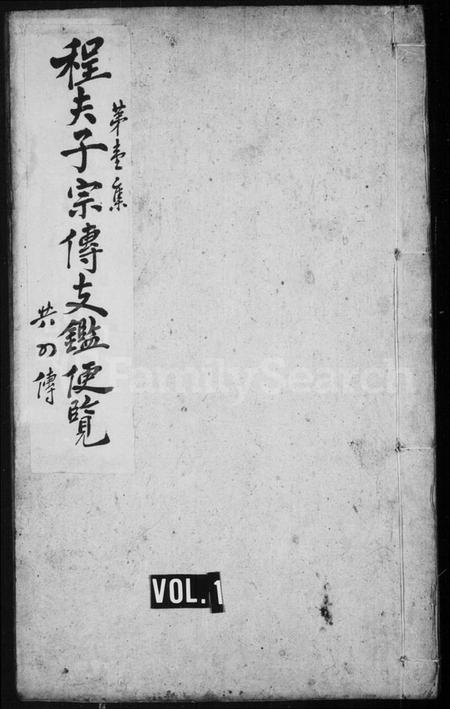 第壹集
程夫子宗傳支鑑便覽
共四傳
FamilySearch
VOL. 1